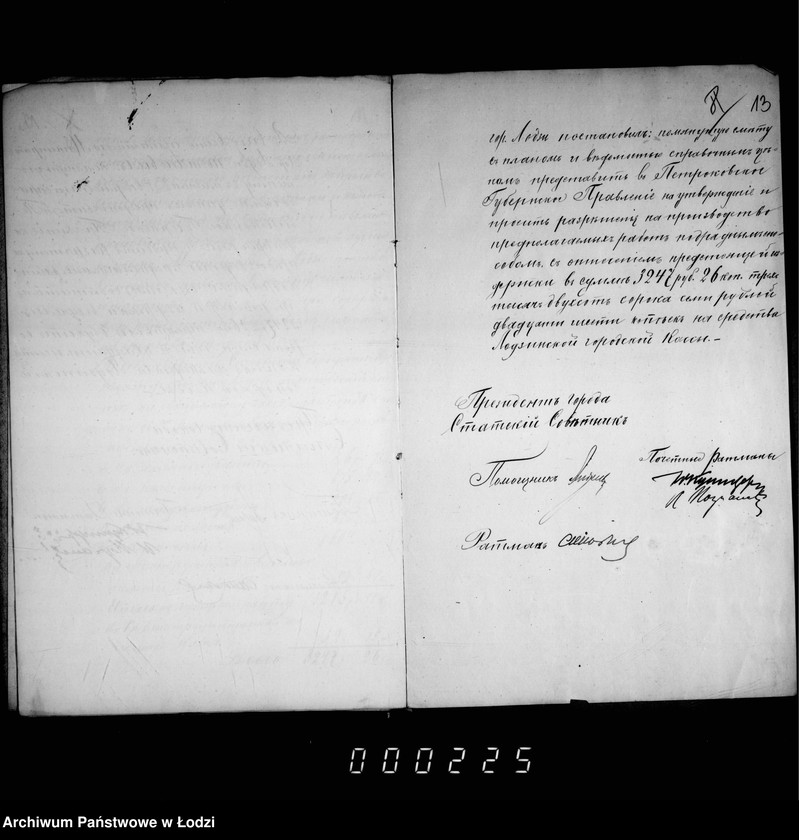 8 13
гор. Лодзи постановил: помянутую смету
с планом и ведомостью справочных це-
нам представить в Петроковское
Губернское Правление на утверждение и
просить разрешения на производство
предполагаемых работ подрядным спо-
собом с отнесением предстоящей из-
держки в сумме 3247 руб. 26 коп. три
тысячи двухсот сорока семи рублей
двадцати шести копеек на средства
Лодзинской городской Кассы. –
Президентъ города
Статскій Совѣтникъ
Почетные ратманы
Помощникъ
Ратманъ
000225
Archiwum Państwowe w Łodzi